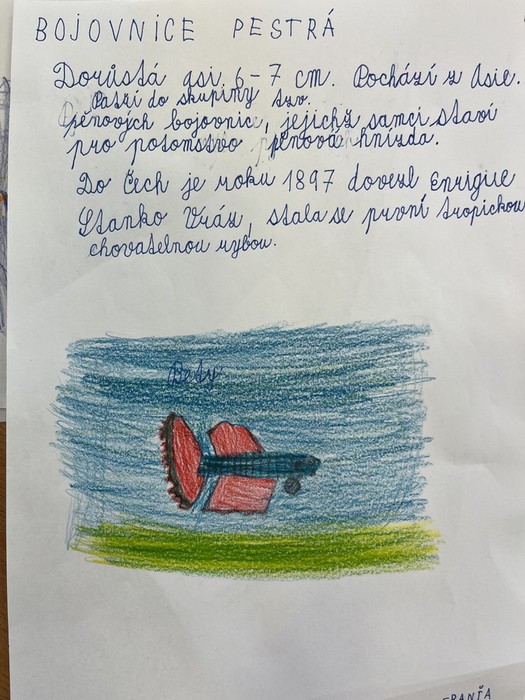 BOJOVNICE PESTRÁ
Dorůstá asi 6-7 cm. Pochází z Asie.
Patří do skupiny tzv.
pěnových bojovnic, jejichž samci staví
pro potomstvo pěnová hnízda.
Do Čech je roku 1897 dovezl Enrique
Stanko Vráz, stala se první tropickou
chovatelnou rybou.
Bety